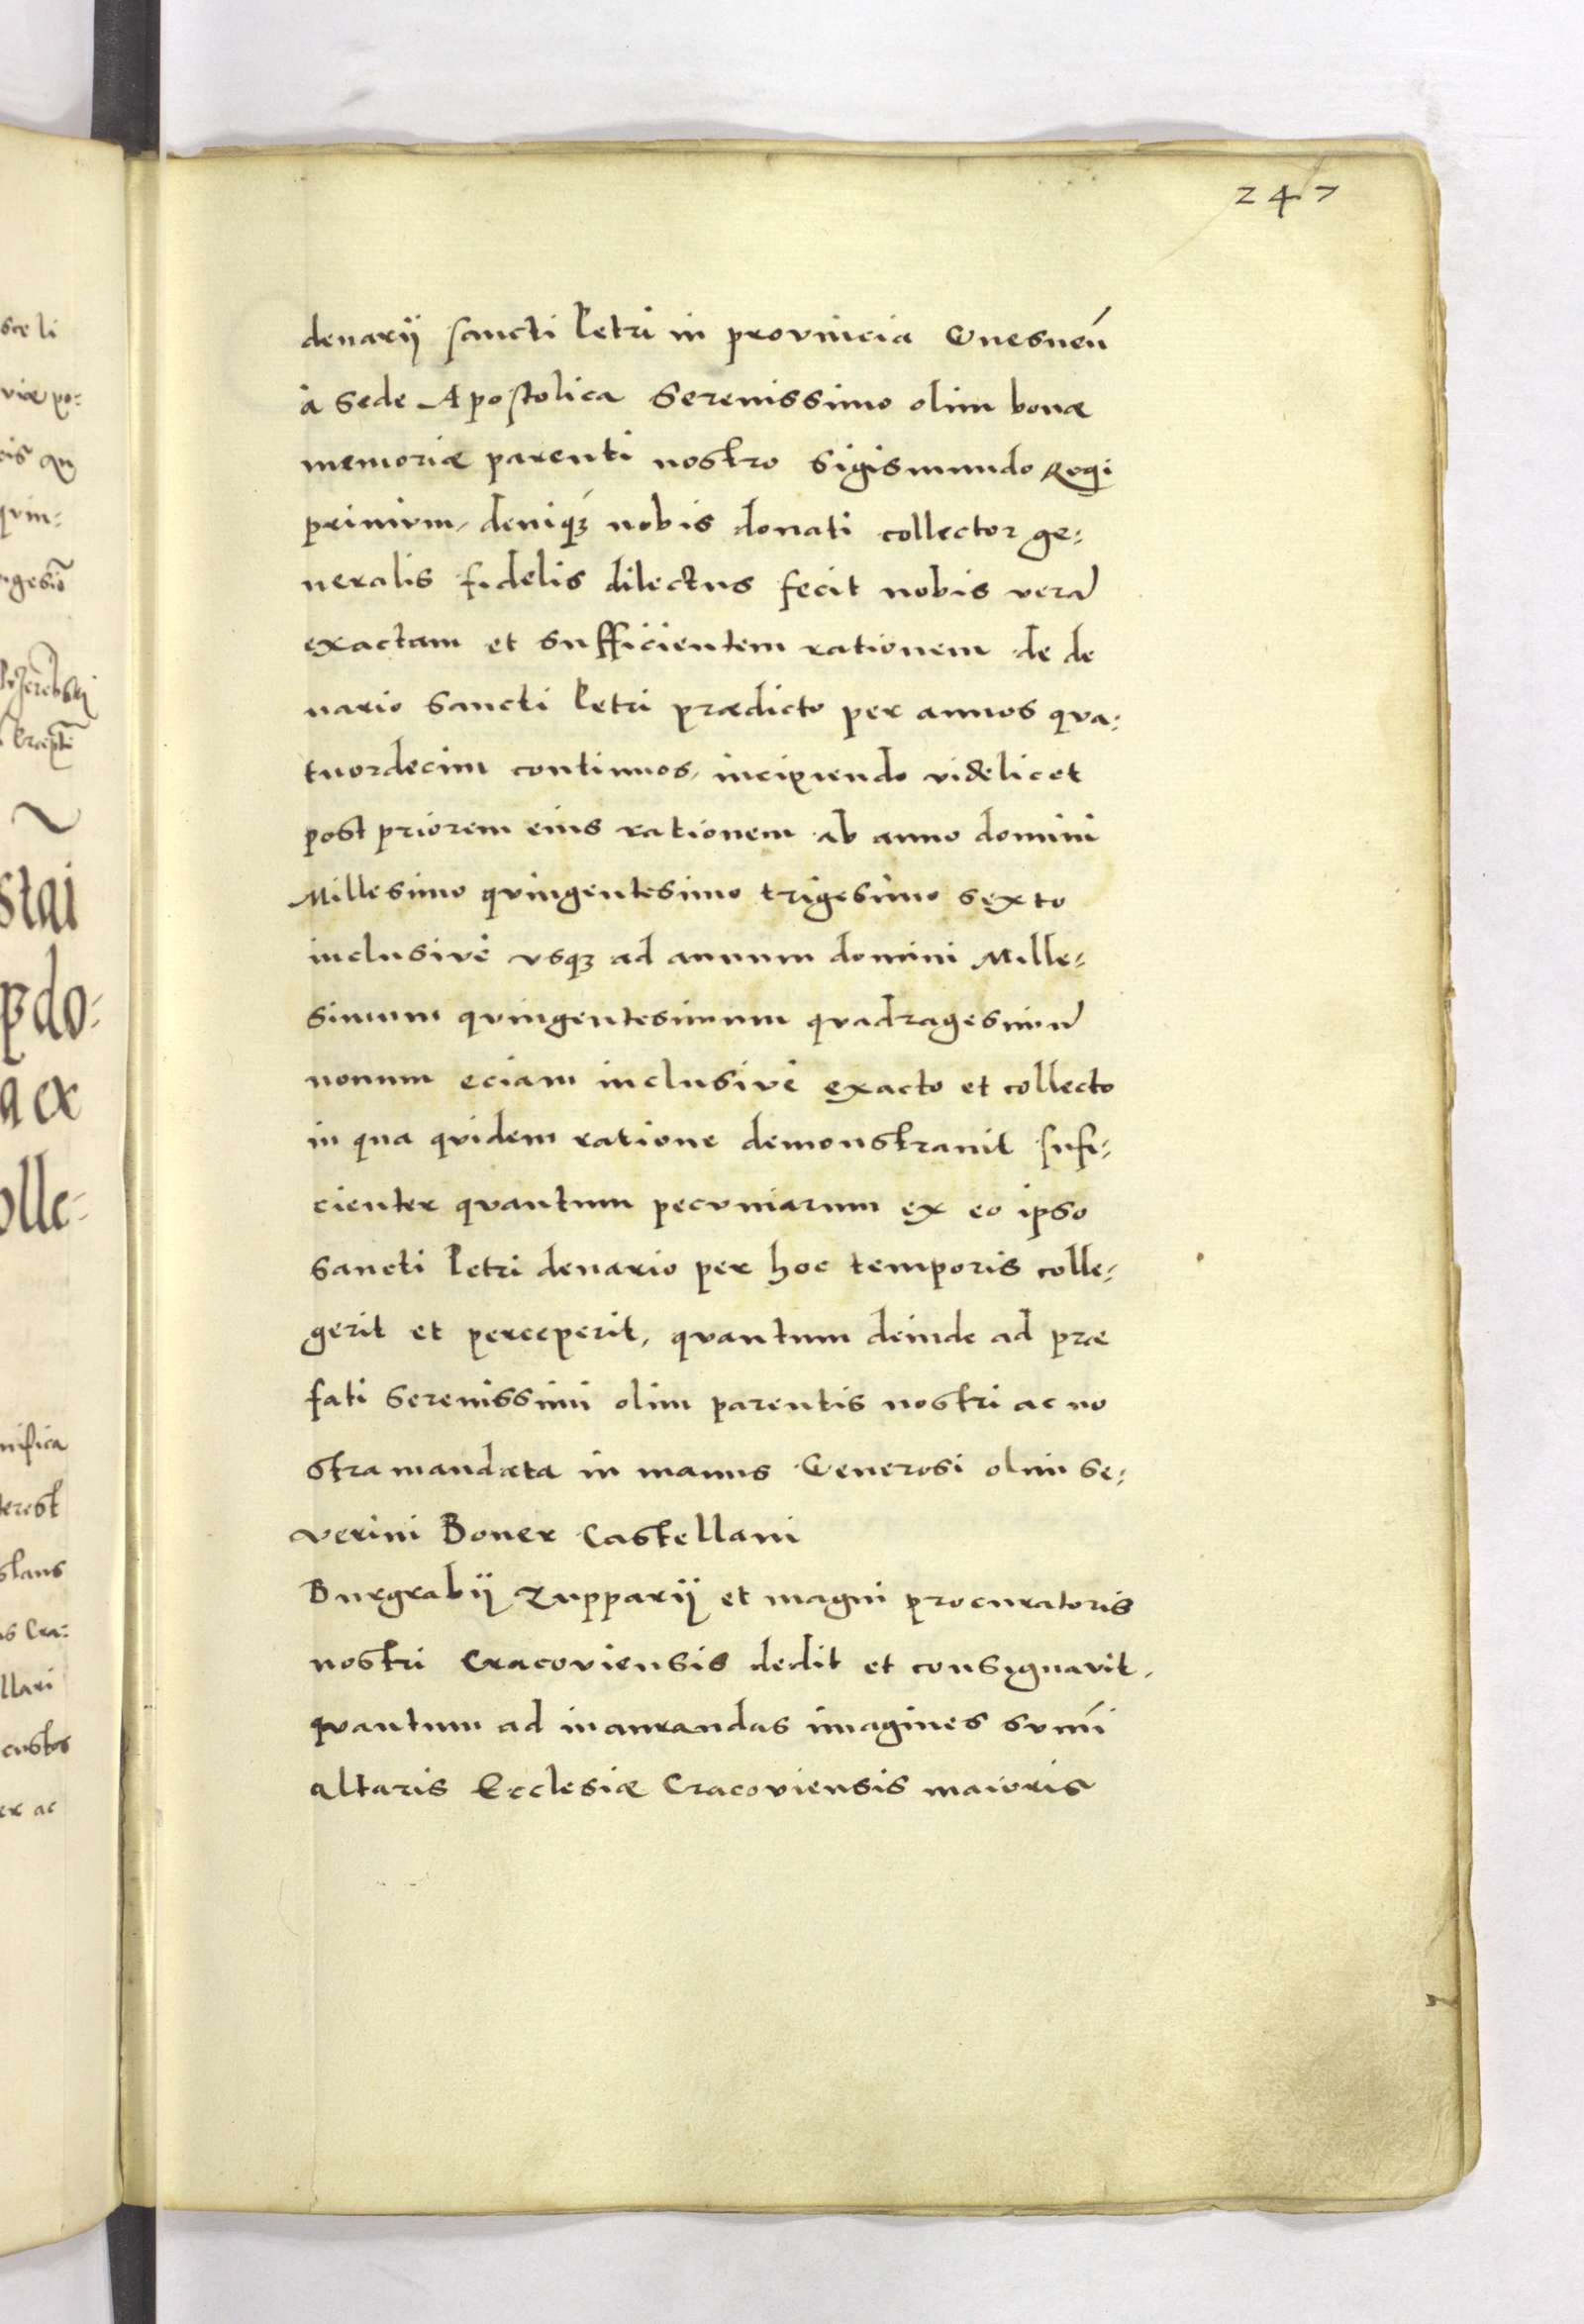 247
denarij sancti Petri in provincia Gnesneń
à Sede Apostolica Serenissimo olim bonæ
memoriæ parenti nostro Sigismundo Regi
primum, deniqꝫ nobis donati collector ge:
neralis fidelis dilectus fecit nobis verã
exactam et sufficientem rationem de de
nario Sancti Petri prædicto per annos qva:
tuordecim continuos, incipiendo videlicet
post priorem eius rationem ab anno domini
Millesimo qvingentesimo trigesimo sexto
inclusivè vsqꝫ ad annum domini Mille:
simum qvingentesimum qvadragesimũ
nonum eciam inclusivè exacto et collecto
in qua qvidem ratione demonstrauit sufi:
cienter qvantum pecvniarum ex eo ipso
Sancti Petri denario per hoc temporis colle:
gerit et perceperit, qvantum deinde ad præ
fati Serenissimi olim parentis nostri ac no
stra mandata in manus Generosi olim Se:
verini Boner Castellani
Burgrabij Zupparij et magni procuratoris
nostri Cracoviensis dedit et consignavit,
qvantum ad inaurandas imagines sum̃i
altaris Ecclesiæ Cracoviensis maioris